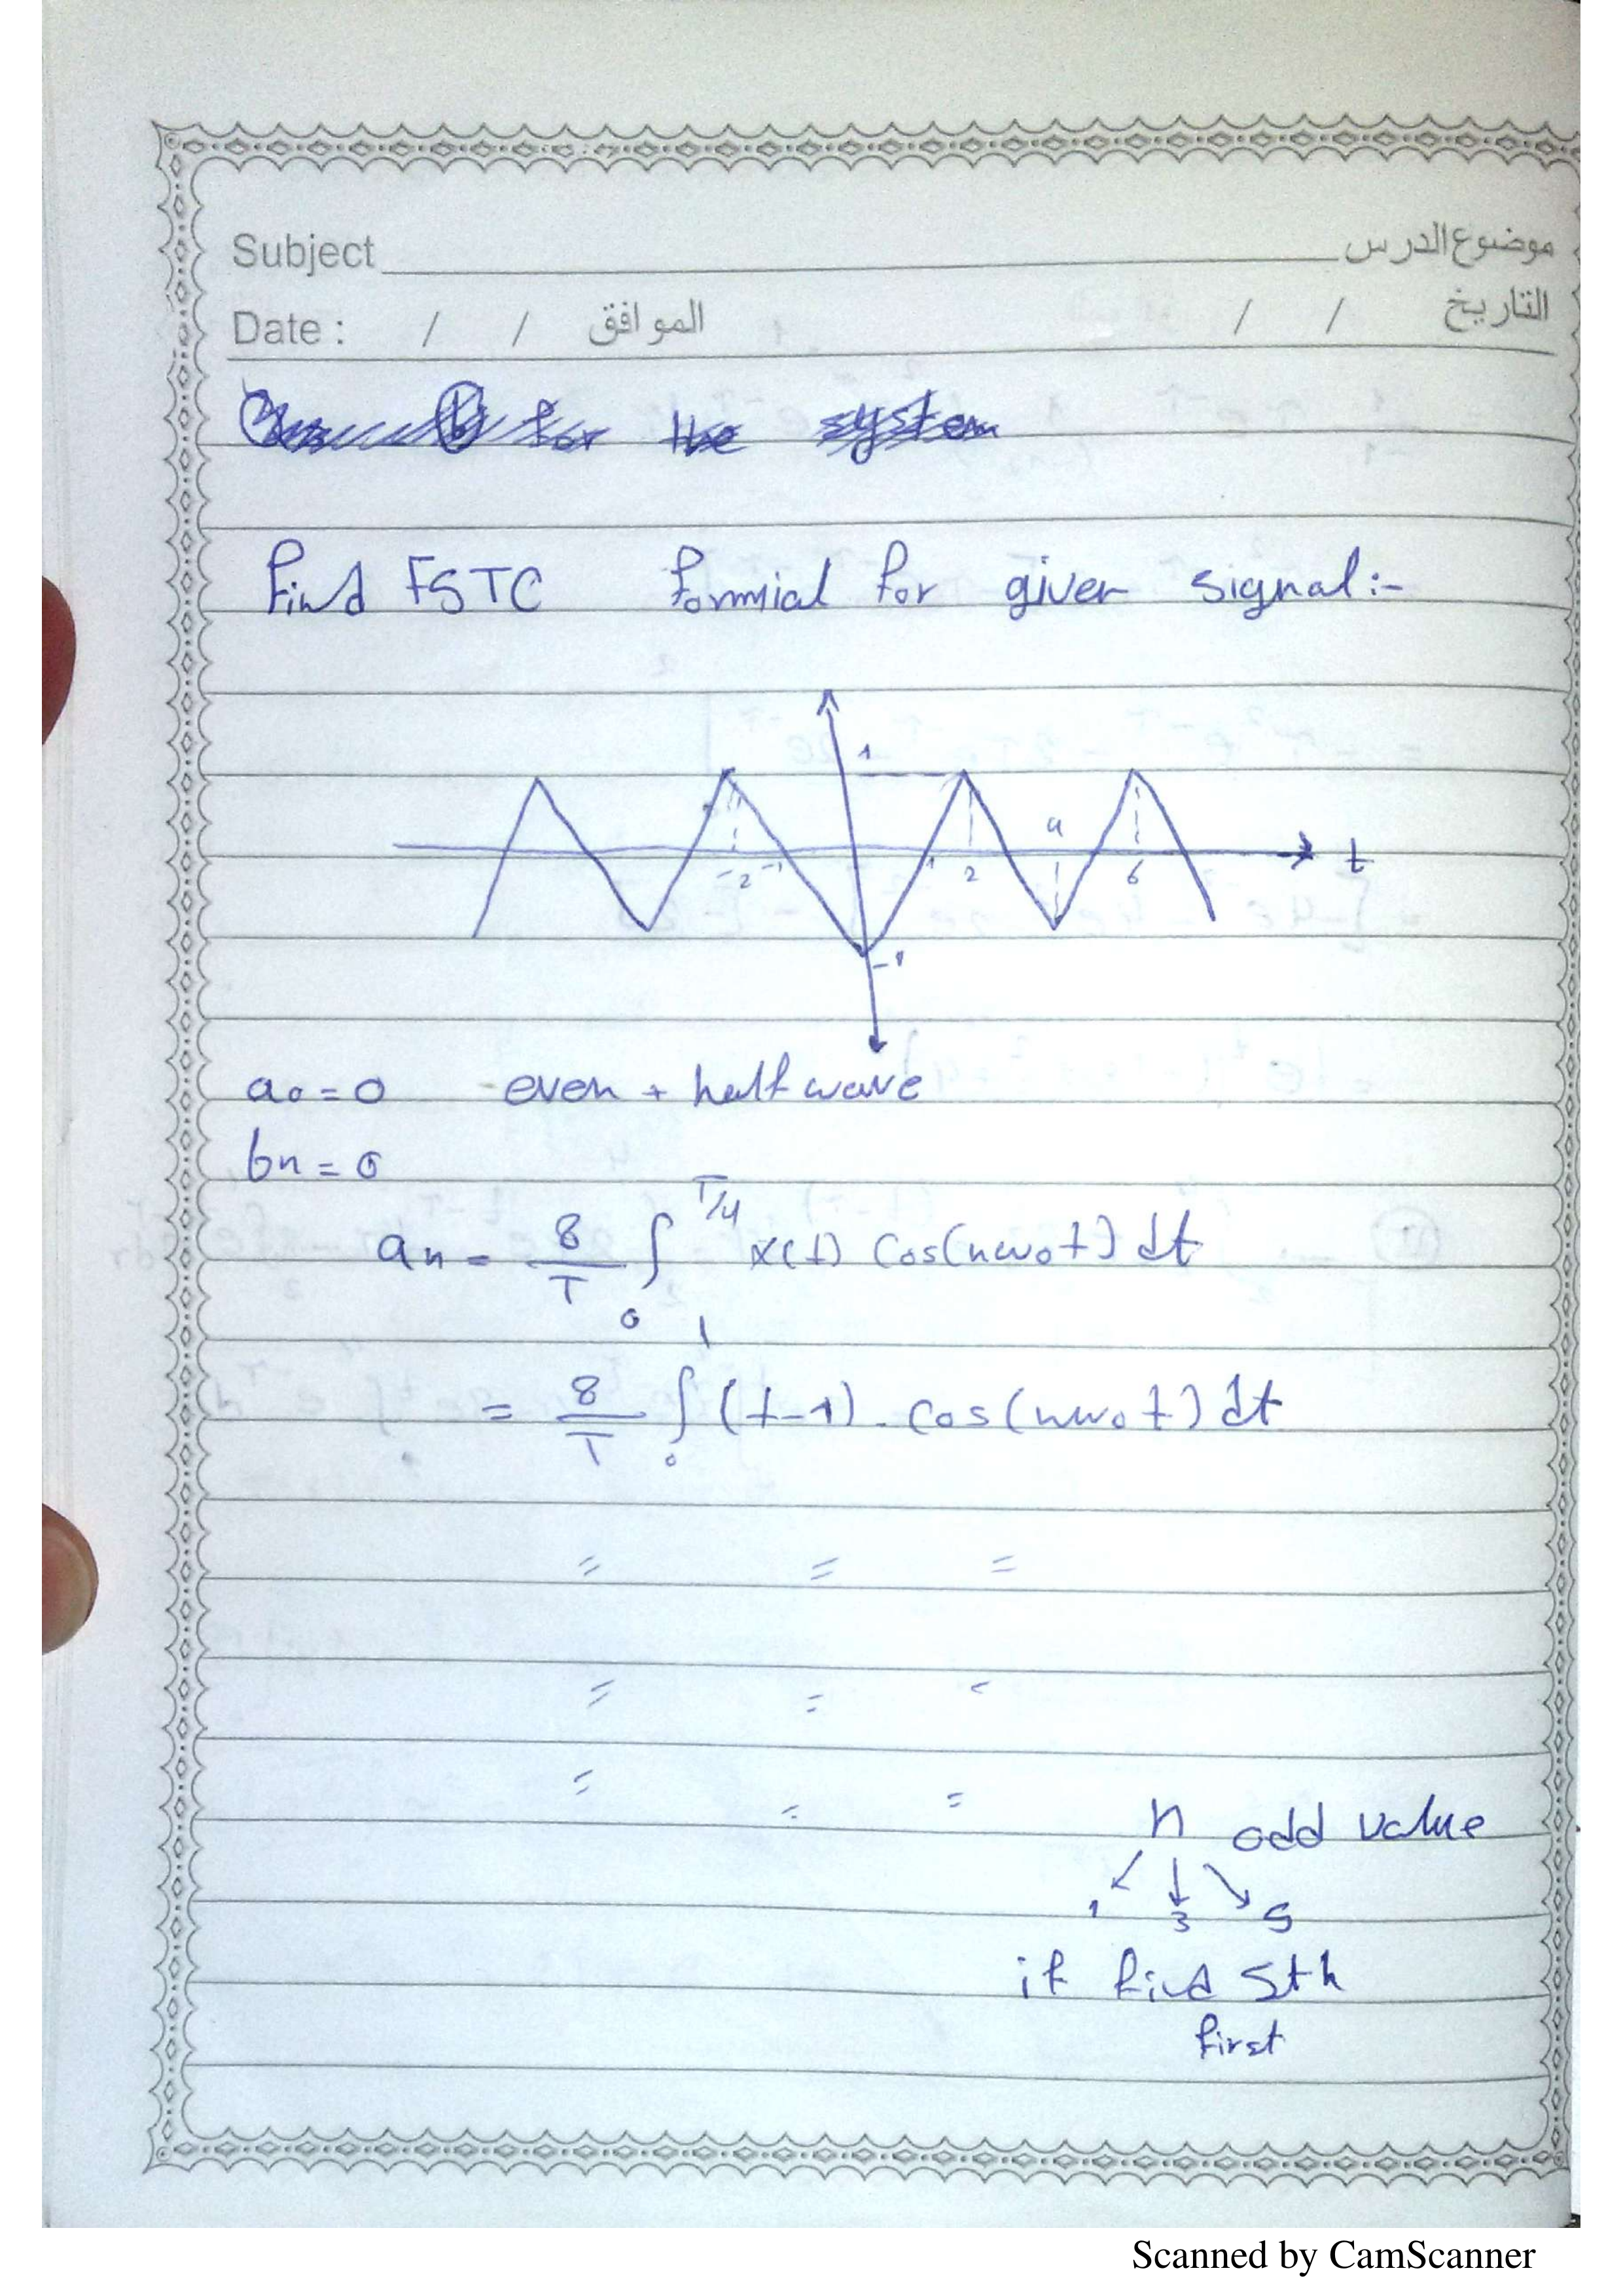 Subject موضوع الدرس
Date : / / الموافق / / التاريخ
for the system
find FSTC for given signal:-
1
4
-2 -1 1 2 6 t
-1
a0 = 0 even + half wave
bn = 0
an = 8/T ∫ 0 T/4 x(t) cos(nw0t) dt
= 8/T ∫ 0 1 (t-1) . cos(nw0t) dt
= = =
= =
= = =
n odd value
1 3 5
if find 5th
first
Scanned by CamScanner